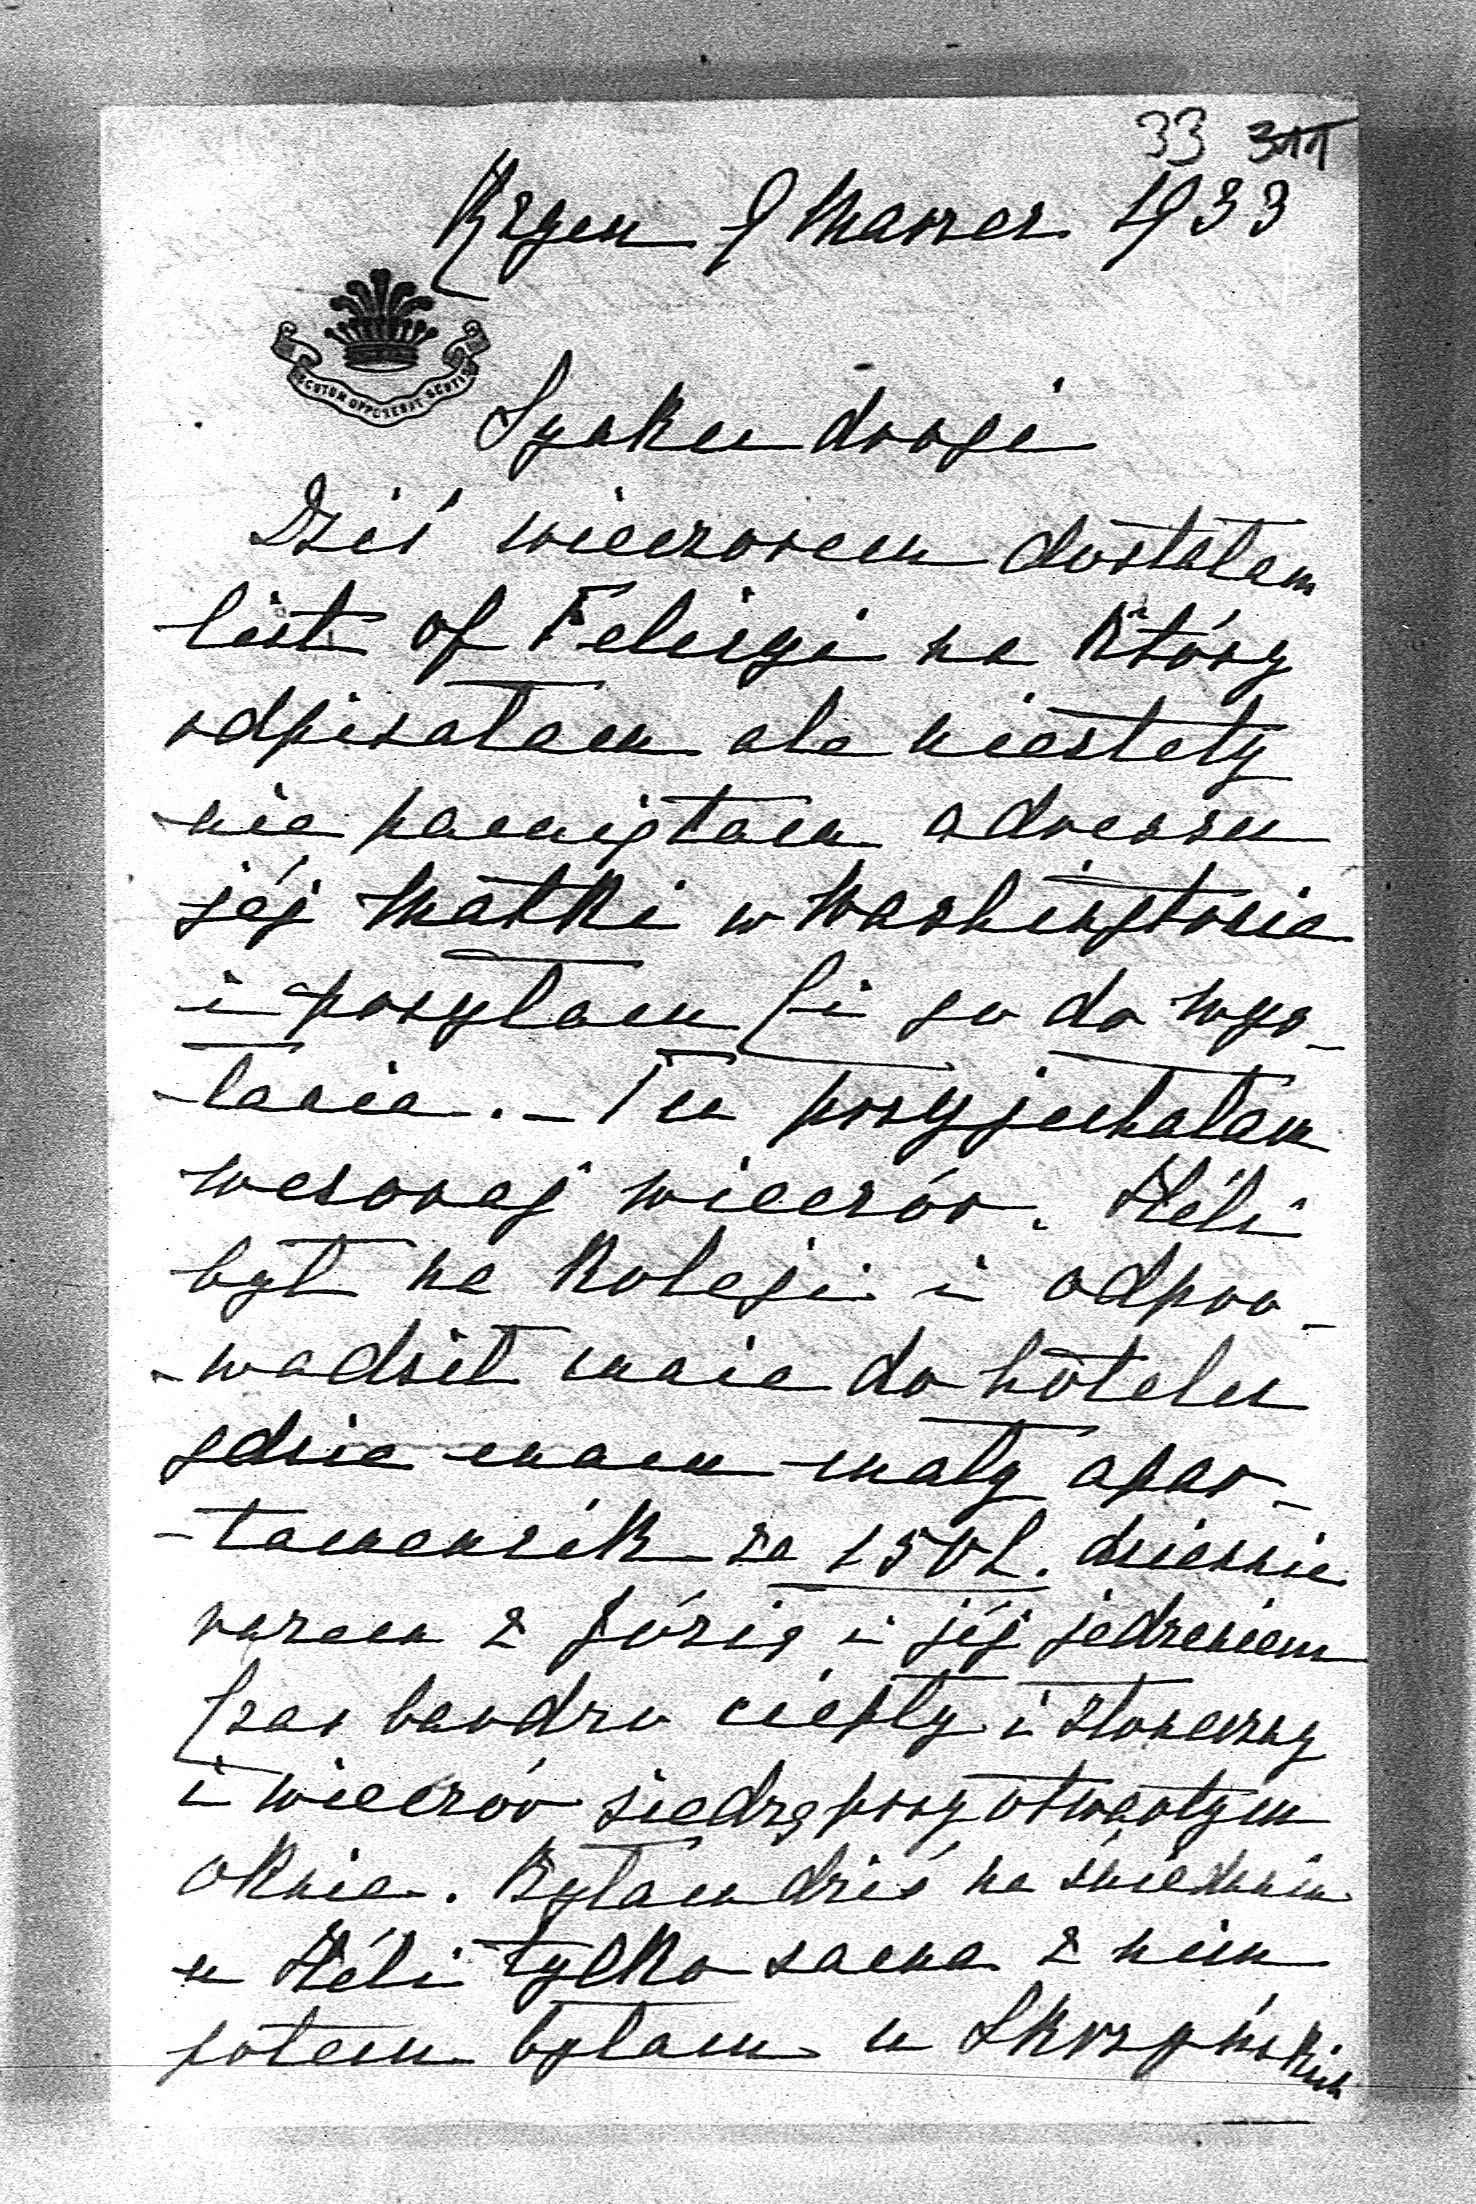 33 377
Rzym 9 Marzec 1933
SCUTUM OPPONEBAT SCUTIS
Synku drogi
Dziś wieczorem dostałam
list of Felicyi na który
odpisałam ale niestety
nie pamiętam adressu
jéj Matki w Washingtonie
i posyłam Ci go do wys-
-łania. - Tu przyjechałam
wczoraj wieczór. Héli
był na Koleji i odpro-
-wadził mnie do hôtelu
gdzie mam mały apar-
-tamencik za 150 L. dziennie
razem z Józią i jéj jedzeniem
Czas bardzo ciepły i słoneczny
i wieczór siedzę przy otwartym
oknie. Byłam dziś na śniadaniu
u Héli tylko sama z nim
potem byłam u Skrzyńskich